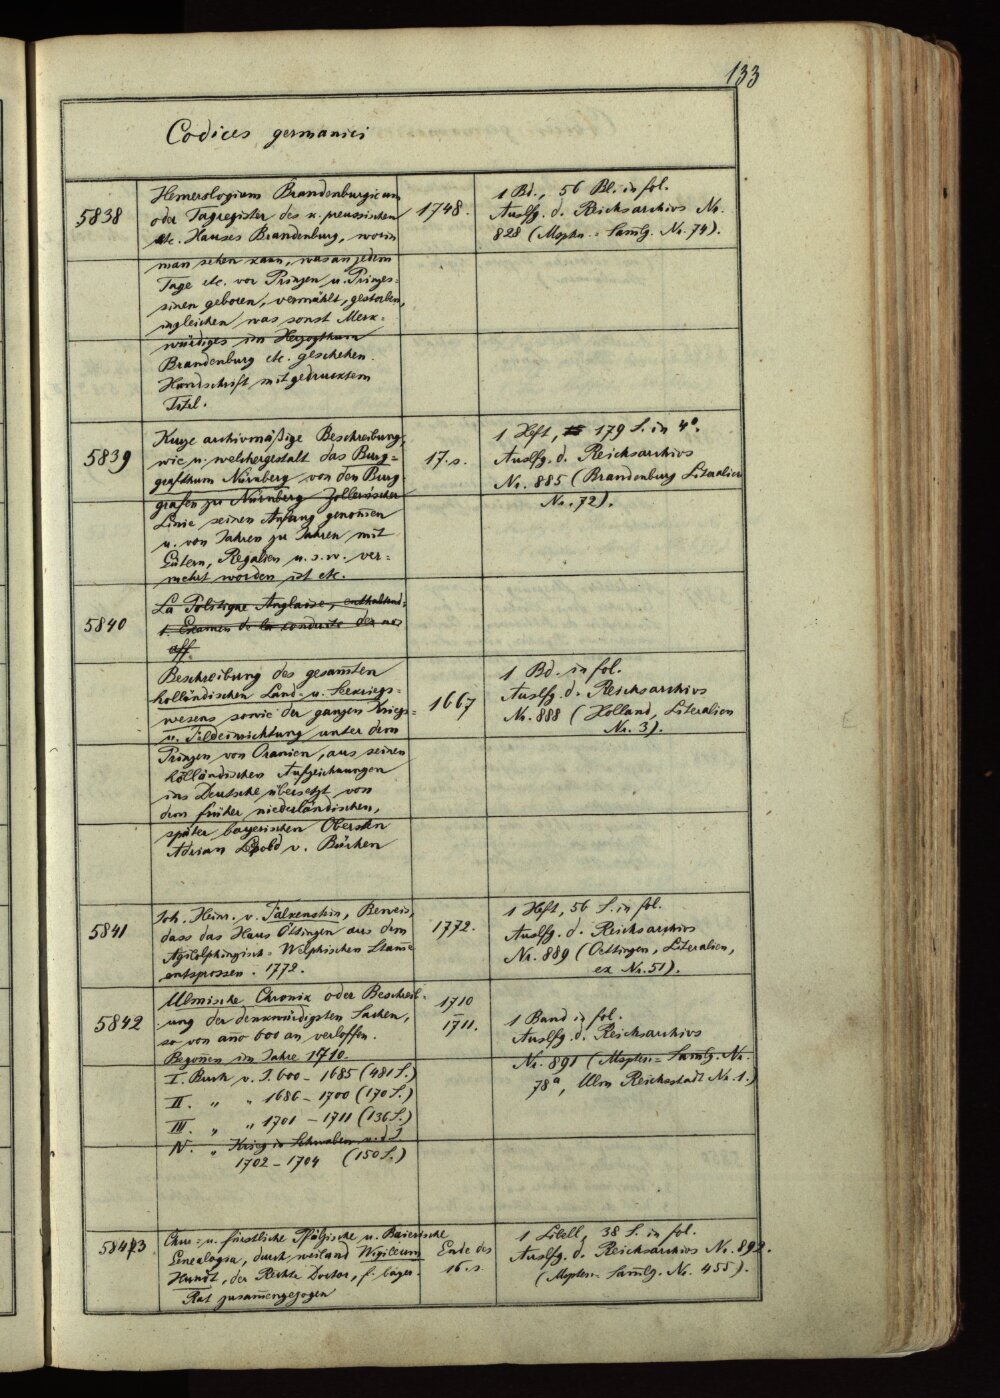 133
Codices germanici
5838
Hemerologium Brandenburgicum
oder Tagregister des k. preussischen
etc. Hauses Brandenburg, worin
man sehen kann, was an jedem
Tage etc. vor Prinzen u. Prinzes-
sinen geboren, vermählt, gestorben,
ingleichen was sonst Merk-
würdiges im Herzogthum
Brandenburg etc. geschehen.
Handschrift mit gedrucktem
Titel.
1748.
1 Bd., 56 Bl. in fol.
Auslfg. d. Reichsarchivs Nr.
828 (Mspten.-Samlg. Nr. 74).
5839
Kurze archivmäßige Beschreibung,
wie u. welchergestalt das Burg-
grafthum Nürnberg von den Burg
grafen zu Nürnberg Zollerischer
Linie seinen Anfang genomen
u. von Jahren zu Jahren mit
Gütern, Regalien u. s. w. ver-
mehrt worden ist etc.
17. s.
1 Heft, 179 S. in 4°.
Auslfg. d. Reichsarchivs
Nr. 885 (Brandenburg Literalien
Nr. 72).
5840
La Politique Anglaise, enthaltend:
1. Examen de la conduite des
aff.
Beschreibung des gesamten
holländischen Land- u. Seekriegs-
wesens sowie der ganzen Kriegs-
u. Feldeinrichtung unter dem
Prinzen von Oranien, aus seinen
holländischen Aufzeichnungen
ins Deutsche übersetzt von
dem früher niederländischen,
später bayerischen Obersten
Adrian Lpold v. Büchen
1667
1 Bd. in fol.
Auslfg. d. Reichsarchivs
Nr. 888 (Holland, Literalien
Nr. 3).
5841
Joh. Heinr. v. Falkenstein, Beweis,
dass das Haus Öttingen aus dem
Agilolphingisch-Welphischen Stame
entsprossen. 1772.
1772.
1 Heft, 56 S. in fol.
Auslfg. d. Reichsarchivs
Nr. 889 (Oettingen, Literalien,
ex Nr. 51).
5842
Ulmische Chronik oder Beschreib-
ung der denkwürdigsten Sachen,
so von año 600 an verloffen.
Begonen im Jahre 1710.
I. Buch v. J. 600 - 1685 (481 S.)
II. " " 1686 - 1700 (170 S.)
III. " " 1701 - 1711 (136 S.)
IV. " Krieg in Schwaben v. d. J
1702 - 1704 (150 S.)
1710
-
1711.
1 Band in fol.
Auslfg. d. Reichsarchivs
Nr. 891 (Mspten-Samlg. Nr.
78a, Ulm Reichsstadt Nr. 1.)
5843
Chur- u. fürstliche Pfälzische u. Baierische
Genealogia, durch weiland Wigileum
Hundt, der Rechte Doctor, f. bayer.
Rat zusamengezogen
Ende des
16. s.
1 Libell, 38 S. in fol.
Auslfg. d. Reichsarchivs Nr. 892.
(Mspten-Samlg. Nr. 455).